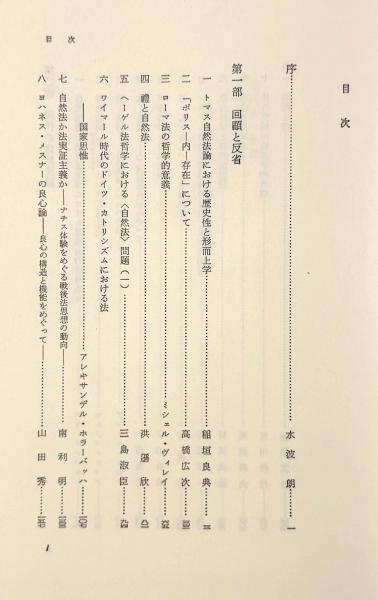 目次
目次
序……水波朗……一
第一部 回顧と反省
一 トマス自然法論における歴史性と形而上学……稲垣良典……
二 「ポリス―内―存在」について……高橋広次……
三 ローマ法の哲学的意義……ミシェル・ヴィレイ……
四 禮と自然法……洪……欣……
五 ヘーゲル法哲学における〈自然法〉問題（一）……三島淑臣……
六 ワイマール時代のドイツ・カトリシズムにおける法
――国家思惟……アレキサンデル・ホラーバッハ……
七 自然法か法実証主義か――ナチス体験をめぐる戦後法思想の動向……南利明……
八 ヨハネス・メスナーの良心論――良心の構造と機能をめぐって――……山田秀……
1